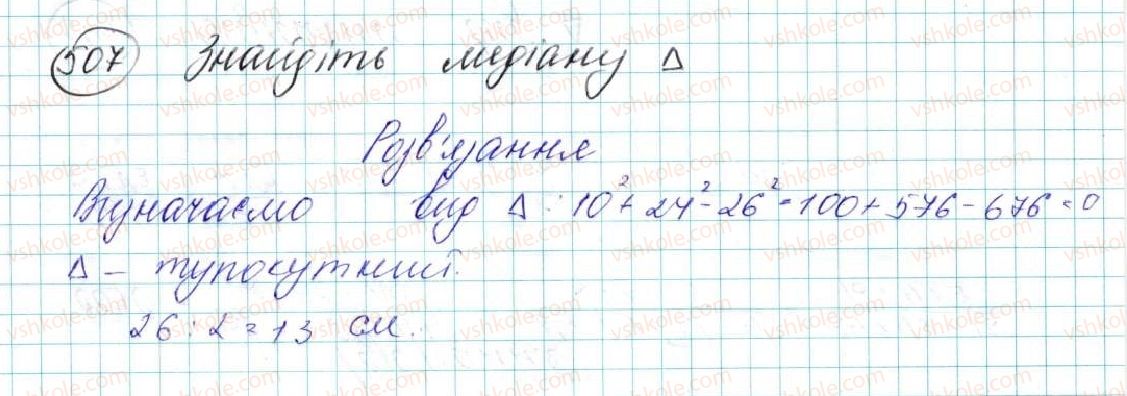 507 Знайдіть медіану Δ
Розв'язання
Визначаємо вид Δ: 10² + 24² - 26² = 100 + 576 - 676 = 0
Δ - тупокутний.
26 : 2 = 13 см.